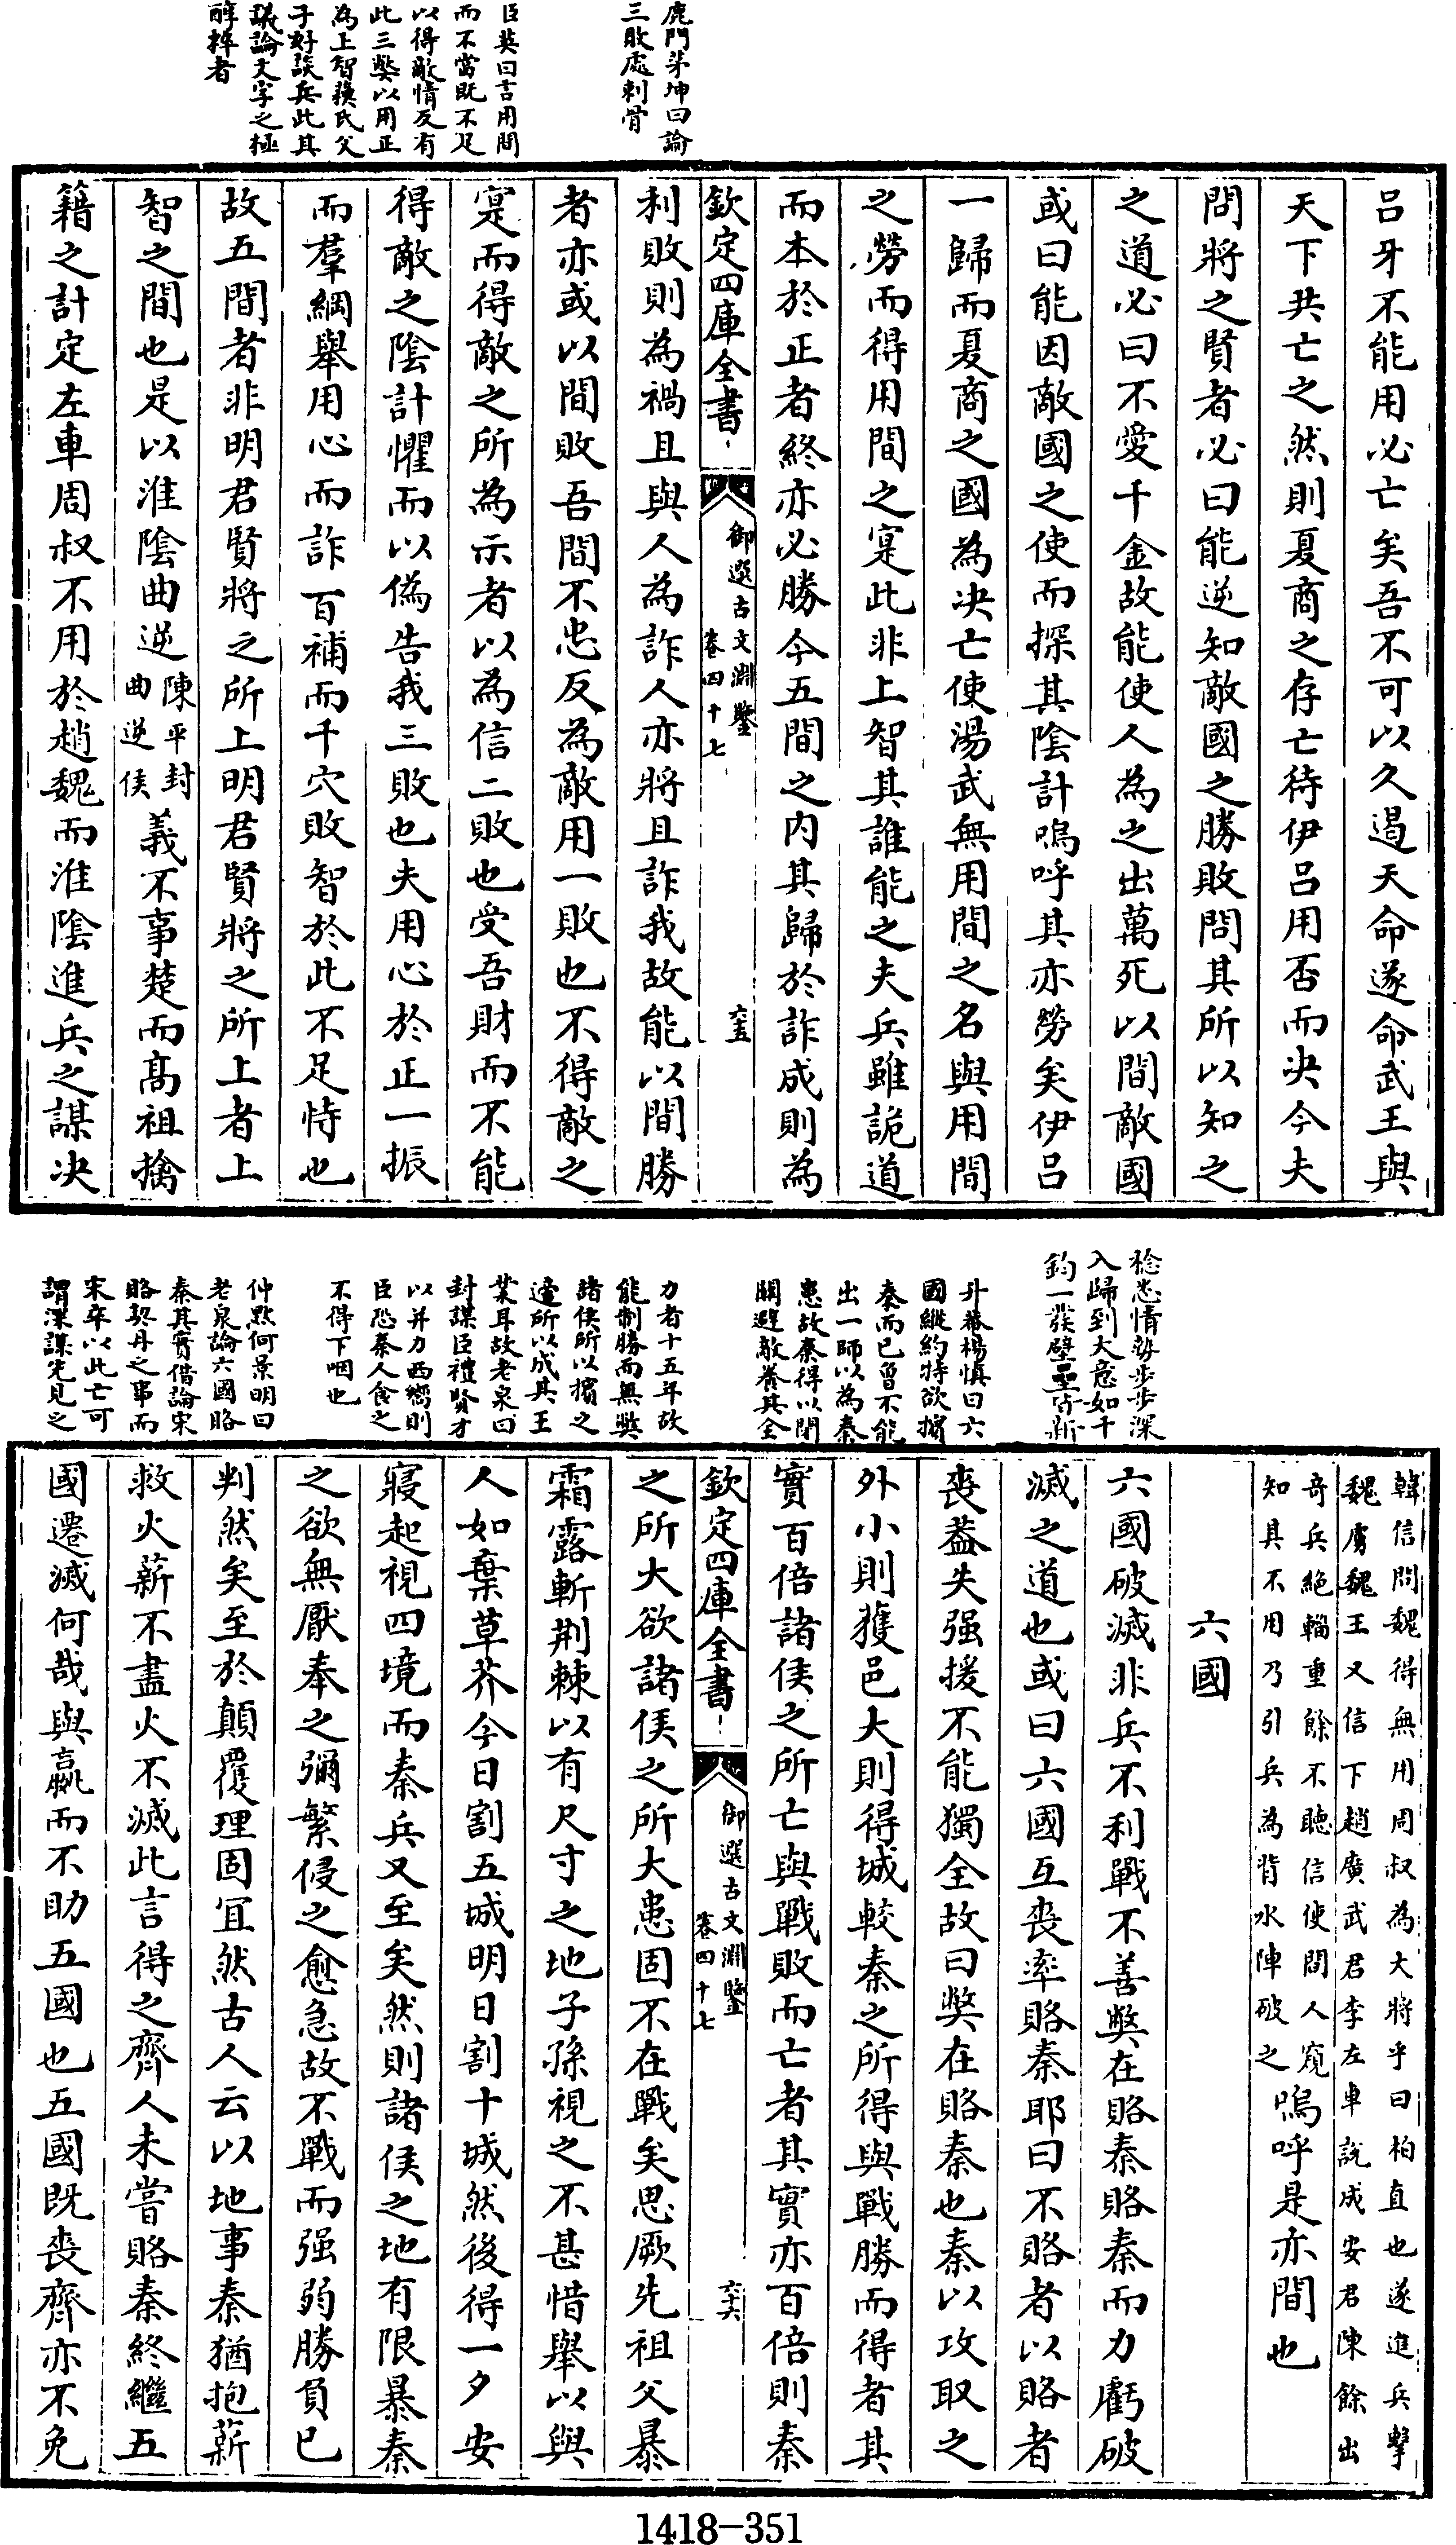 鹿門茅坤曰論
三敗處刺骨
臣英曰言用間
而不當既不足
以得敵情反有
此三弊以用正
為上智蘇氏父
子好談兵此其
議論文字之極
醇粹者
吕牙不能用必亡矣吾不可以久遏天命遂命武王與
天下共亡之然則夏商之存亡待伊吕用否而决今夫
問將之賢者必曰能逆知敵國之勝敗問其所以知之
之道必曰不愛千金故能使人為之出萬死以間敵國
或曰能因敵國之使而探其陰計嗚呼其亦勞矣伊吕
一歸而夏商之國為决亡使湯武無用間之名與用間
之勞而得用間之寔此非上智其誰能之夫兵雖詭道
而本於正者終亦必勝今五間之内其歸於詐成則為
欽定四庫全書
御選古文淵鑒
卷四十七
六五
利敗則為禍且與人為詐人亦將且詐我故能以間勝
者亦或以間敗吾間不忠反為敵用一敗也不得敵之
寔而得敵之所為示者以為信二敗也受吾財而不能
得敵之陰計懼而以偽告我三敗也夫用心於正一振
而羣綱舉用心而詐百補而千穴敗智於此不足恃也
故五間者非明君賢將之所上明君賢將之所上者上
智之間也是以淮陰曲逆陳平封曲逆侯義不事楚而高祖擒
籍之計定左車周叔不用於趙魏而淮陰進兵之謀决
稔恙情勢步步深
入歸到大意如千
鈞一發壁壘皆新
升菴楊慎曰六
國縱約特欲擯
秦而已曾不能
出一師以為秦
患故秦得以閉
關避敵養其全
力者十五年故
能制勝而無弊
諸侯所以擯之
適所以成其王
業耳故老泉曰
封謀臣禮賢才
以并力西嚮則
臣恐秦人食之
不得下咽也
仲默何景明曰
老泉論六國賂
秦其實借論宋
賂契丹之事而
宋卒以此亡可
謂深謀先見之
韓信問魏得無用周叔為大將乎曰柏直也遂進兵擊
魏虜魏王又信下趙廣武君李左車説成安君陳餘出
奇兵絶輜重餘不聽信使間人窺
知其不用乃引兵為背水陣破之嗚呼是亦間也
六國
六國破滅非兵不利戰不善弊在賂秦賂秦而力虧破
滅之道也或曰六國互喪率賂秦耶曰不賂者以賂者
喪葢失强援不能獨全故曰弊在賂秦也秦以攻取之
外小則獲邑大則得城較秦之所得與戰勝而得者其
實百倍諸侯之所亡與戰敗而亡者其實亦百倍則秦
欽定四庫全書
御選古文淵鑒
卷四十七
六六
之所大欲諸侯之所大患固不在戰矣思厥先祖父暴
霜露斬荆棘以有尺寸之地子孫視之不甚惜舉以與
人如棄草芥今日割五城明日割十城然後得一夕安
寢起視四境而秦兵又至矣然則諸侯之地有限暴秦
之欲無厭奉之彌繁侵之愈急故不戰而强弱勝負已
判然矣至於顛覆理固宜然古人云以地事秦猶抱薪
救火薪不盡火不滅此言得之齊人未嘗賂秦終繼五
國遷滅何哉與嬴而不助五國也五國既喪齊亦不免
1418-351